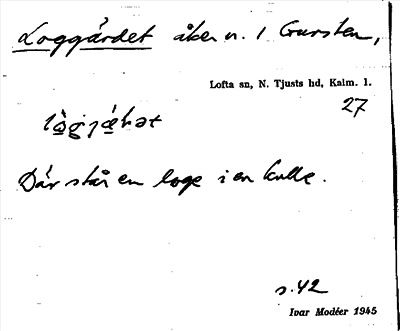 Loggärdet åker n. 1 Gursten,
Lofta sn, N. Tjusts hd, Kalm. l.
27
Där står en loge i en kulle.
s. 42
Ivar Modéer 1945